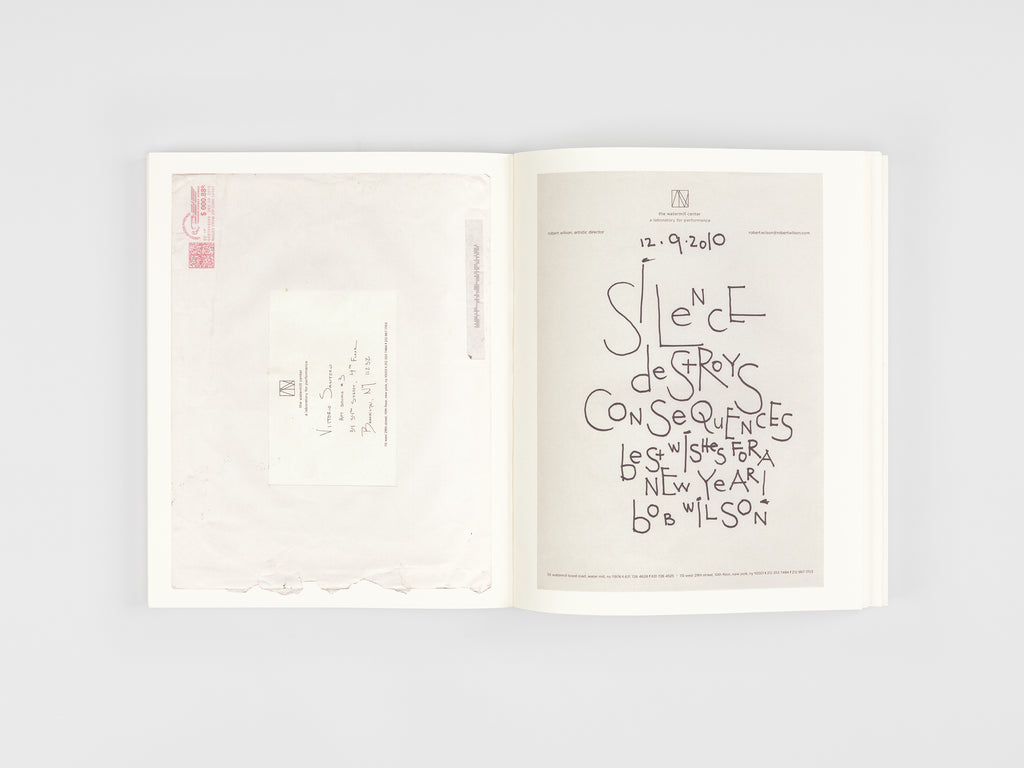 $ 000.88⁰
the watermill center
a laboratory for performance
Vittorio Santoro
39 31st Street, 4th Floor
Brooklyn, NY 11232
the watermill center
a laboratory for performance
robert wilson, artistic director
robert.wilson@robertwilson.com
12.9.2010
SiLeNcE
deStROYS
CONSeQuENCES
beSt wiSHeS FORA
NEW YeAR!
bOB wiLSON